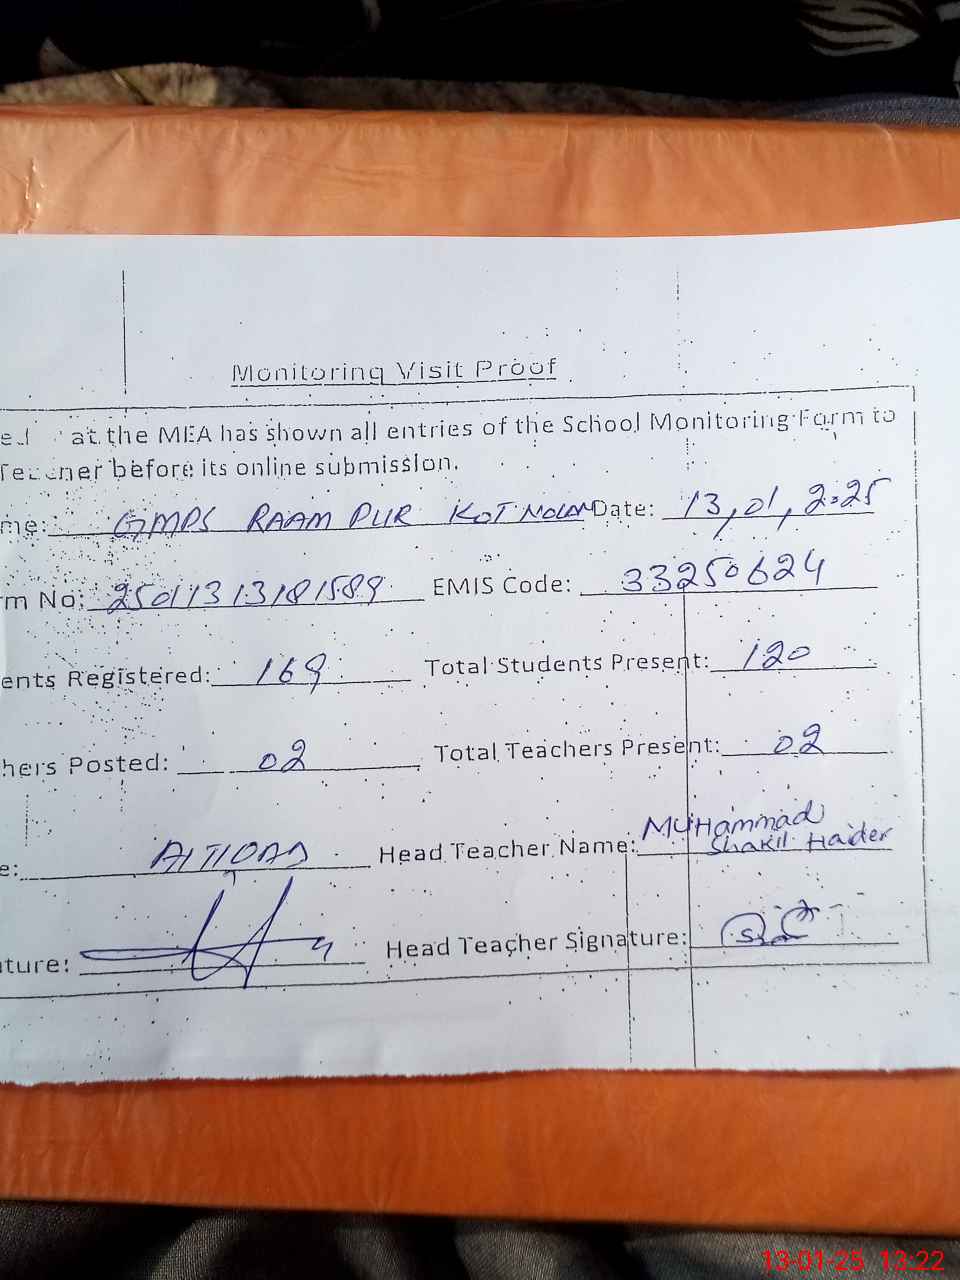 Monitoring Visit Proof
at the MEA has shown all entries of the School Monitoring Form to
Teacher before its online submission.
me: GMPS RAAM PUR KOT Date: 13,01,2025
rm No: 25011313181589 EMIS Code: 33250624
ents Registered: 169 Total Students Present: 120
hers Posted: 02 Total Teachers Present: 02
e: Head Teacher Name: MUHammad
Shakil Haider
ture: Head Teacher Signature:
13-01-25 13:22